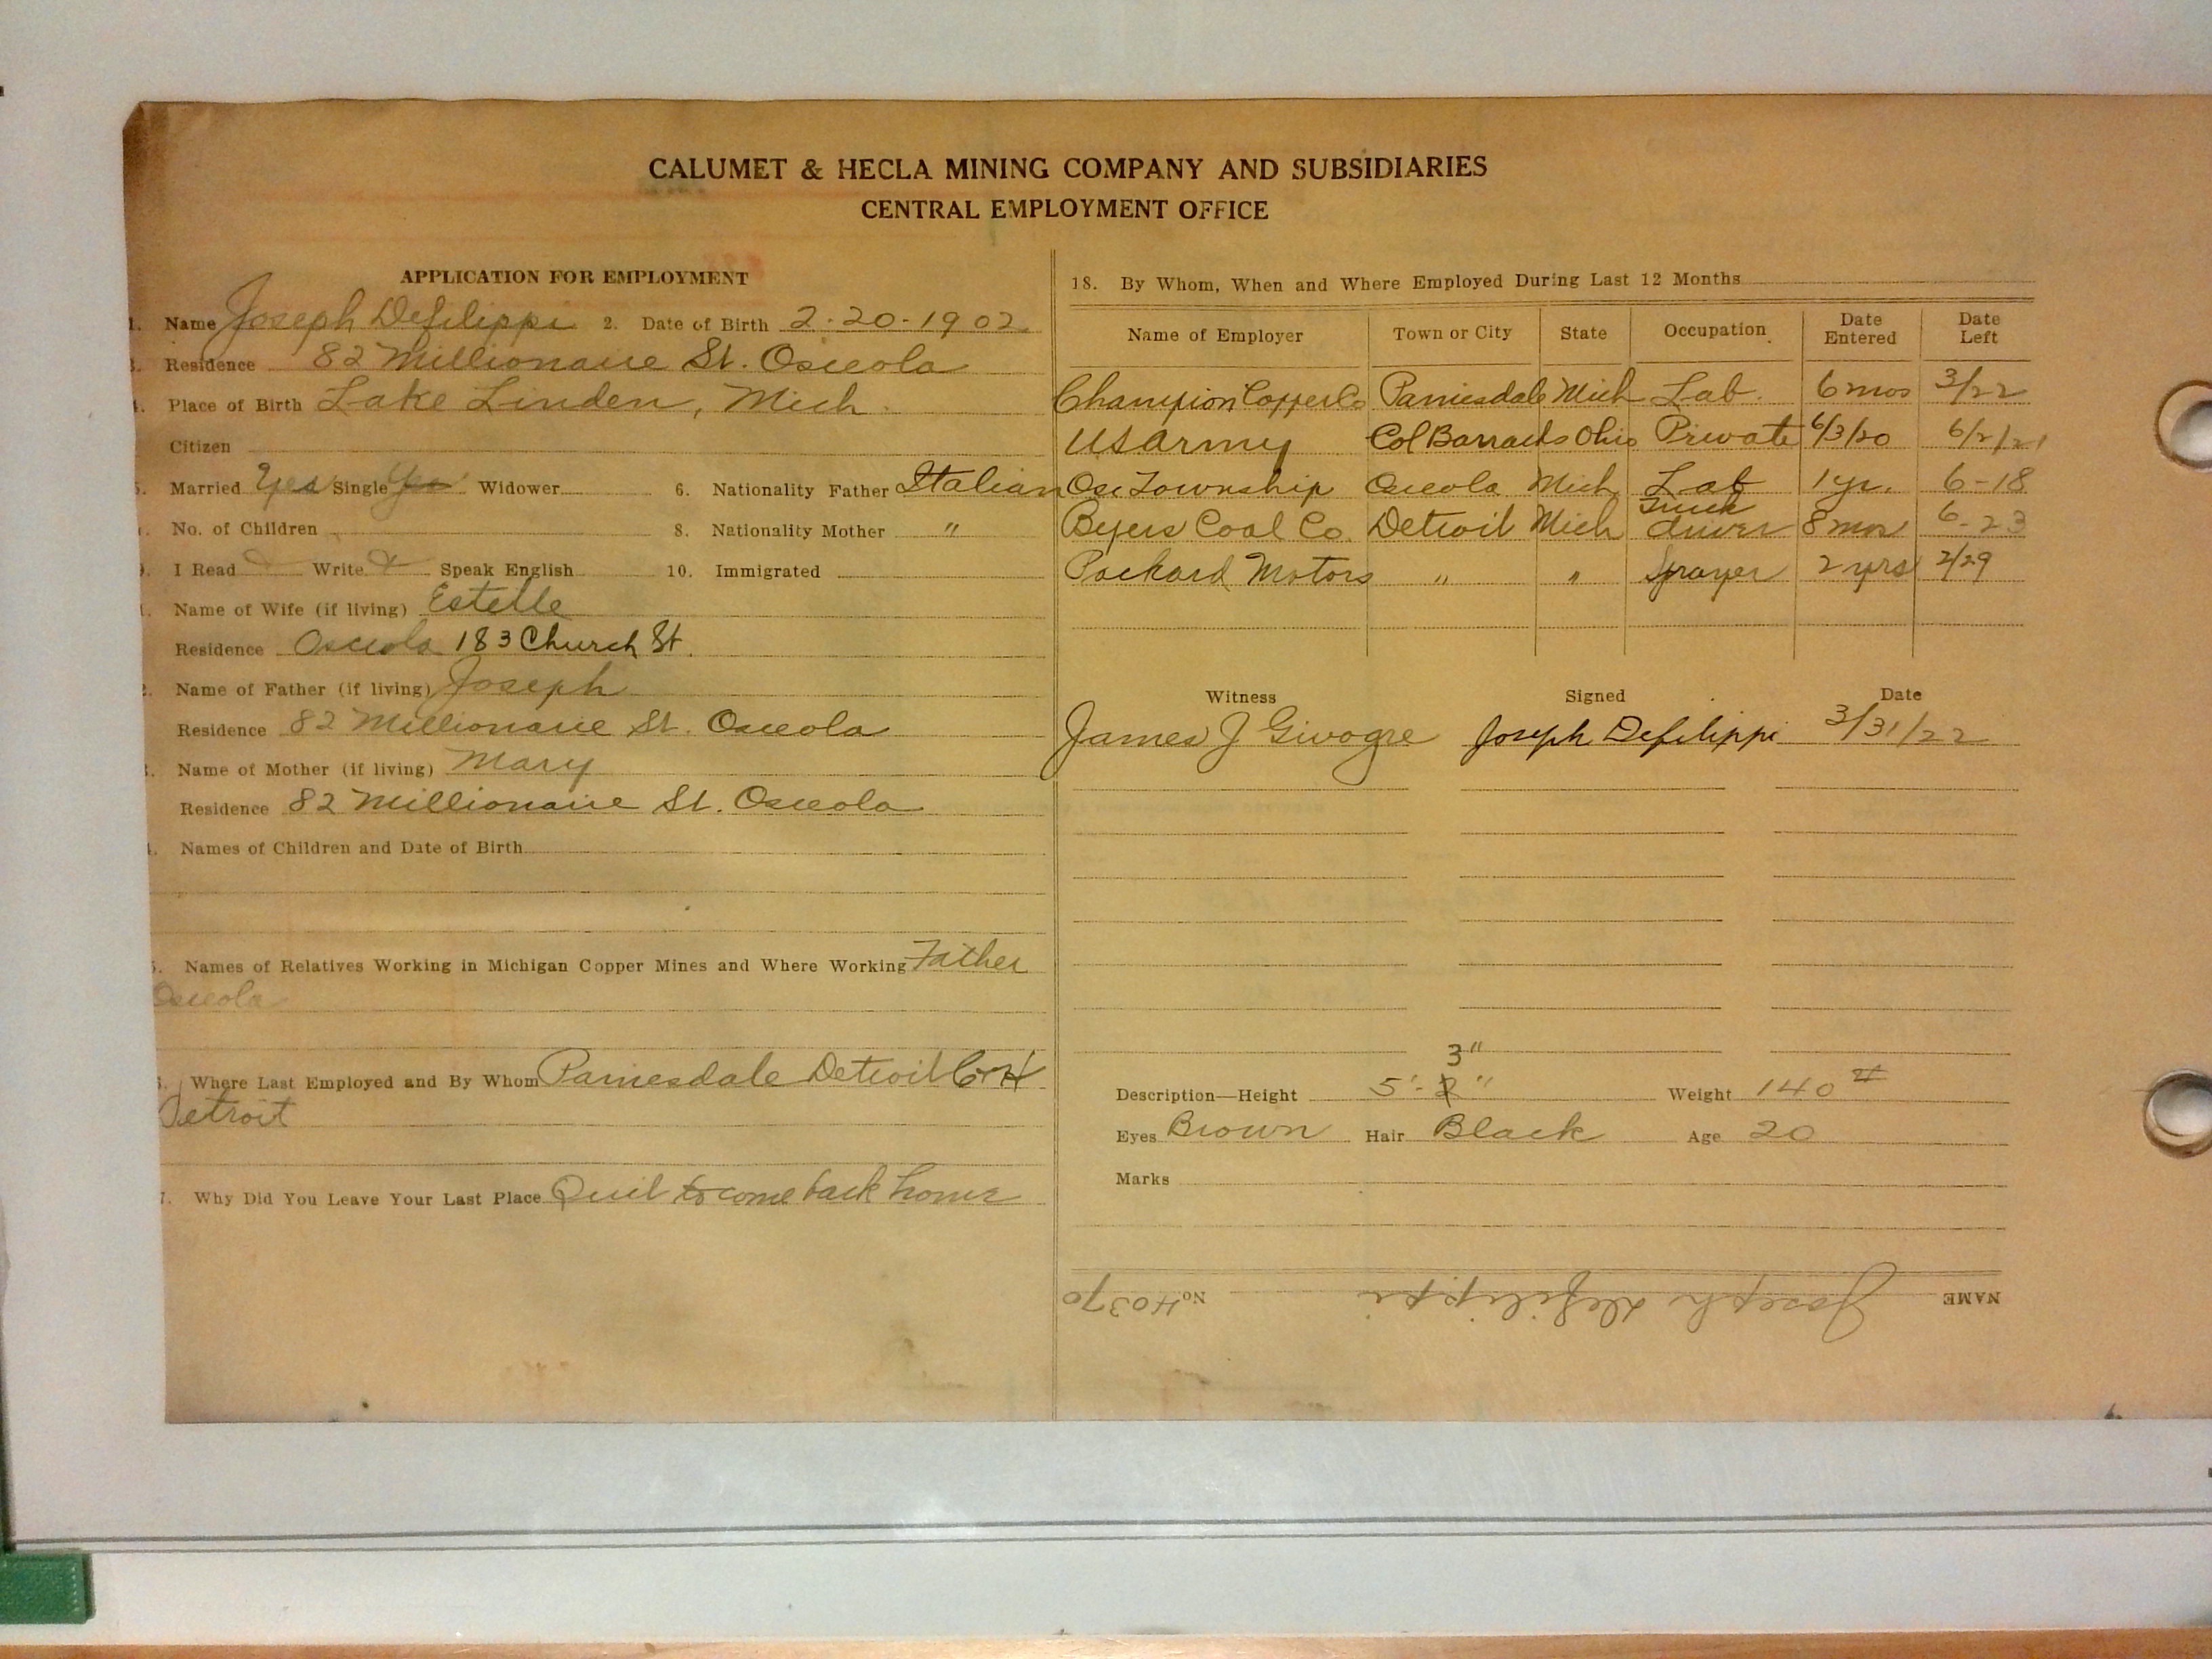 CALUMET & HECLA MINING COMPANY AND SUBSIDIARIES
CENTRAL EMPLOYMENT OFFICE
APPLICATION FOR EMPLOYMENT
1. Name Joseph Defilippi 2. Date of Birth 2-20-1902
3. Residence 82 Millionaire St. Osceola
4. Place of Birth Lake Linden, Mich.
Citizen
5. Married Yes Single Yes Widower 6. Nationality Father Italian
No. of Children 8. Nationality Mother "
9. I Read Write Speak English 10. Immigrated
1. Name of Wife (if living) Estelle
Residence Osceola 183 Church St.
2. Name of Father (if living) Joseph
Residence 82 Millionaire St. Osceola
3. Name of Mother (if living) Mary
Residence 82 Millionaire St. Osceola
4. Names of Children and Date of Birth
5. Names of Relatives Working in Michigan Copper Mines and Where Working Father
Osceola
6. Where Last Employed and By Whom Painesdale Detroit C+H
Detroit
7. Why Did You Leave Your Last Place Quit to come back home
18. By Whom, When and Where Employed During Last 12 Months
Name of Employer Town or City State Occupation Date Entered Date Left
Champion Copper Co Painesdale Mich Lab. 6 mos 3/22
US Army Col Barracks Ohio Private 6/3/20 6/2/21
Osc Township Osceola Mich Lab 1 yr. 6-18
Byers Coal Co. Detroit Mich Truck driver 8 mos 6-23
Packard Motors " " Sprayer 2 yrs 2/29
Witness Signed Date
James J Givogre Joseph Defilippi 3/31/22
3"
Description—Height 5'-2" Weight 140 #
Eyes Brown Hair Black Age 20
Marks
NAME Joseph Defilippi No 40370